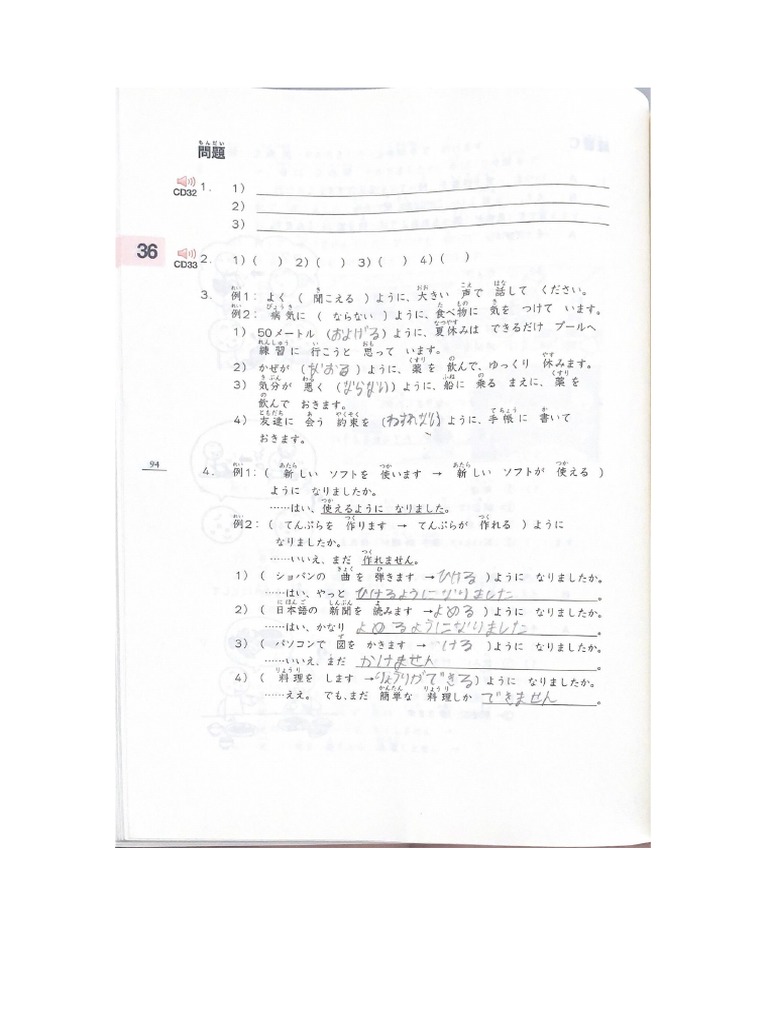 もんだい
問題
CD32 1. 1)
2)
3)
36
CD33 2. 1) ( ) 2) ( ) 3) ( ) 4) ( )
3. 例1：よく ( 聞こえる ) ように、大きい 声で 話して ください。
例2：病気に ( ならない ) ように、食べ物に 気を つけて います。
1) 50メートル (およげる) ように、夏休みは できるだけ プールへ
練習に 行こうと 思って います。
2) かぜが (なおる) ように、薬を 飲んで、ゆっくり 休みます。
3) 気分が 悪く (ならない) ように、船に 乗る まえに、薬を
飲んで おきます。
4) 友達に 会う 約束を (わすれない) ように、手帳に 書いて
おきます。
94
4. 例1：( 新しい ソフトを 使います → 新しい ソフトが 使える )
ように なりましたか。
……はい、使えるように なりました。
例2：( てんぷらを 作ります → てんぷらが 作れる ) ように
なりましたか。
……いいえ、まだ 作れません。
1) ( ショパンの 曲を 弾きます →ひける ) ように なりましたか。
……はい、やっと ひけるようになりました。
2) ( 日本語の 新聞を 読みます →よめる ) ように なりましたか。
……はい、かなり よめるようになりました。
3) ( パソコンで 図を かきます → かける ) ように なりましたか。
……いいえ、まだ かけません。
4) ( 料理を します →りょうりができる) ように なりましたか。
……ええ。でも、まだ 簡単な 料理しか できません。